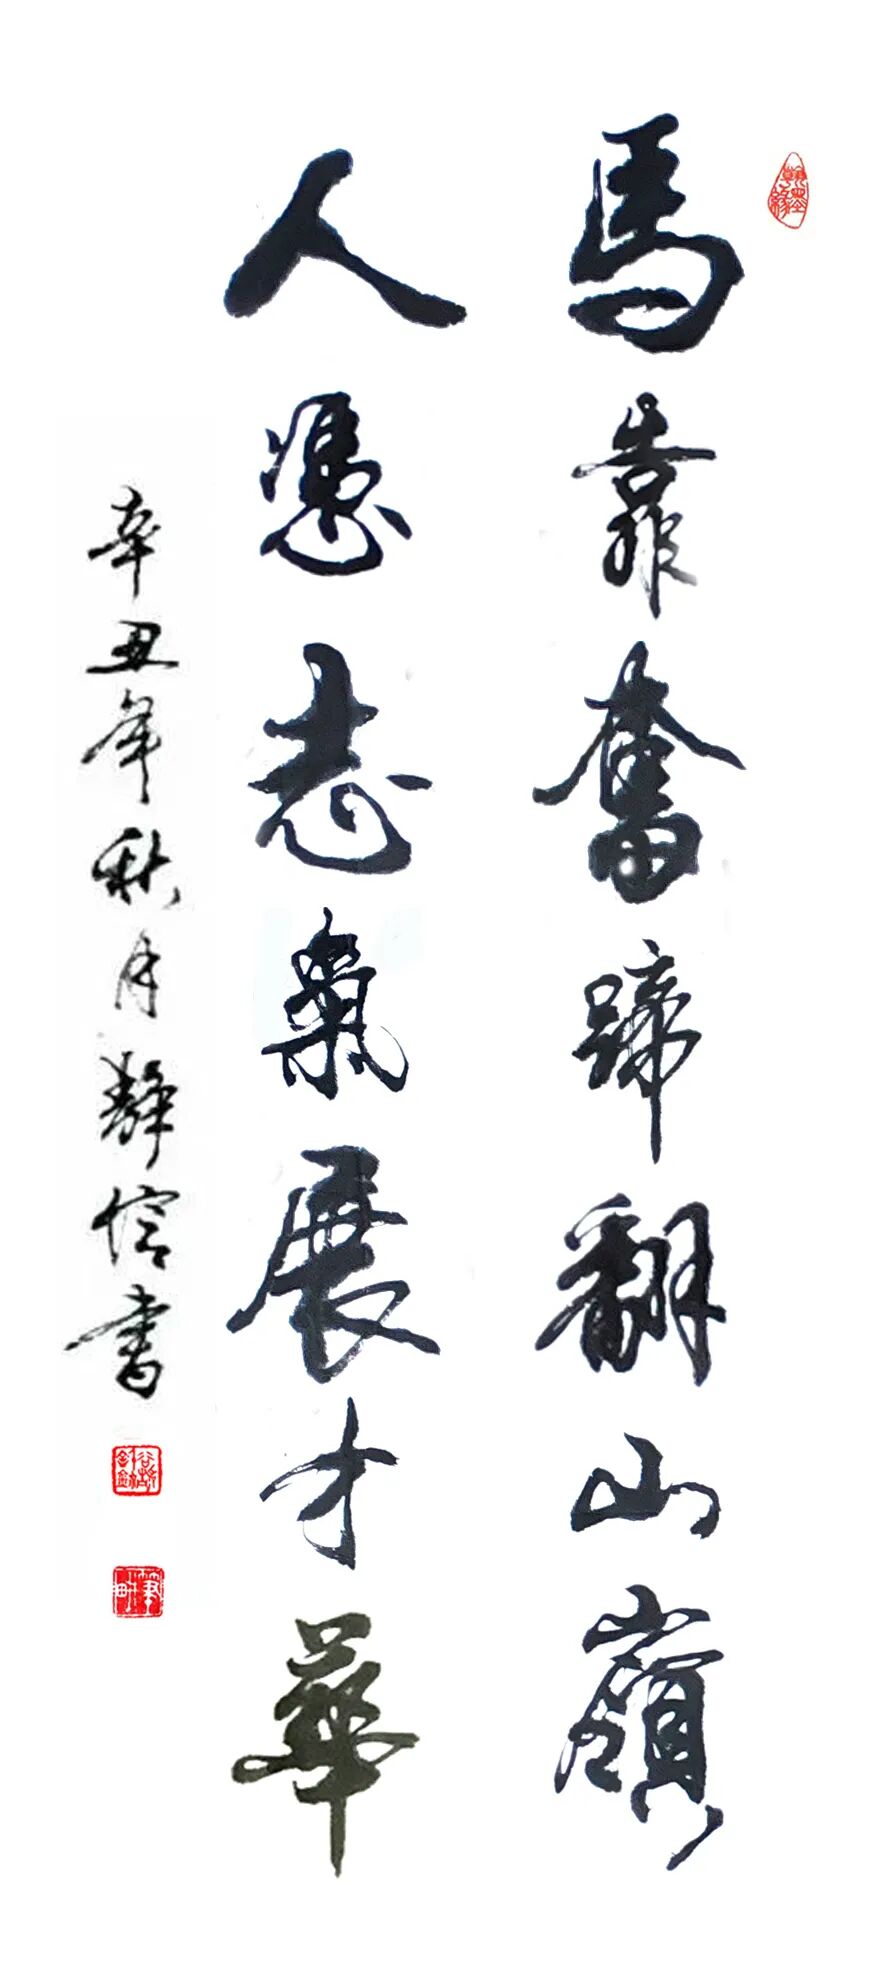 馬靠奮蹄翻山嶺
人憑志氣展才華
辛丑年秋月静信書